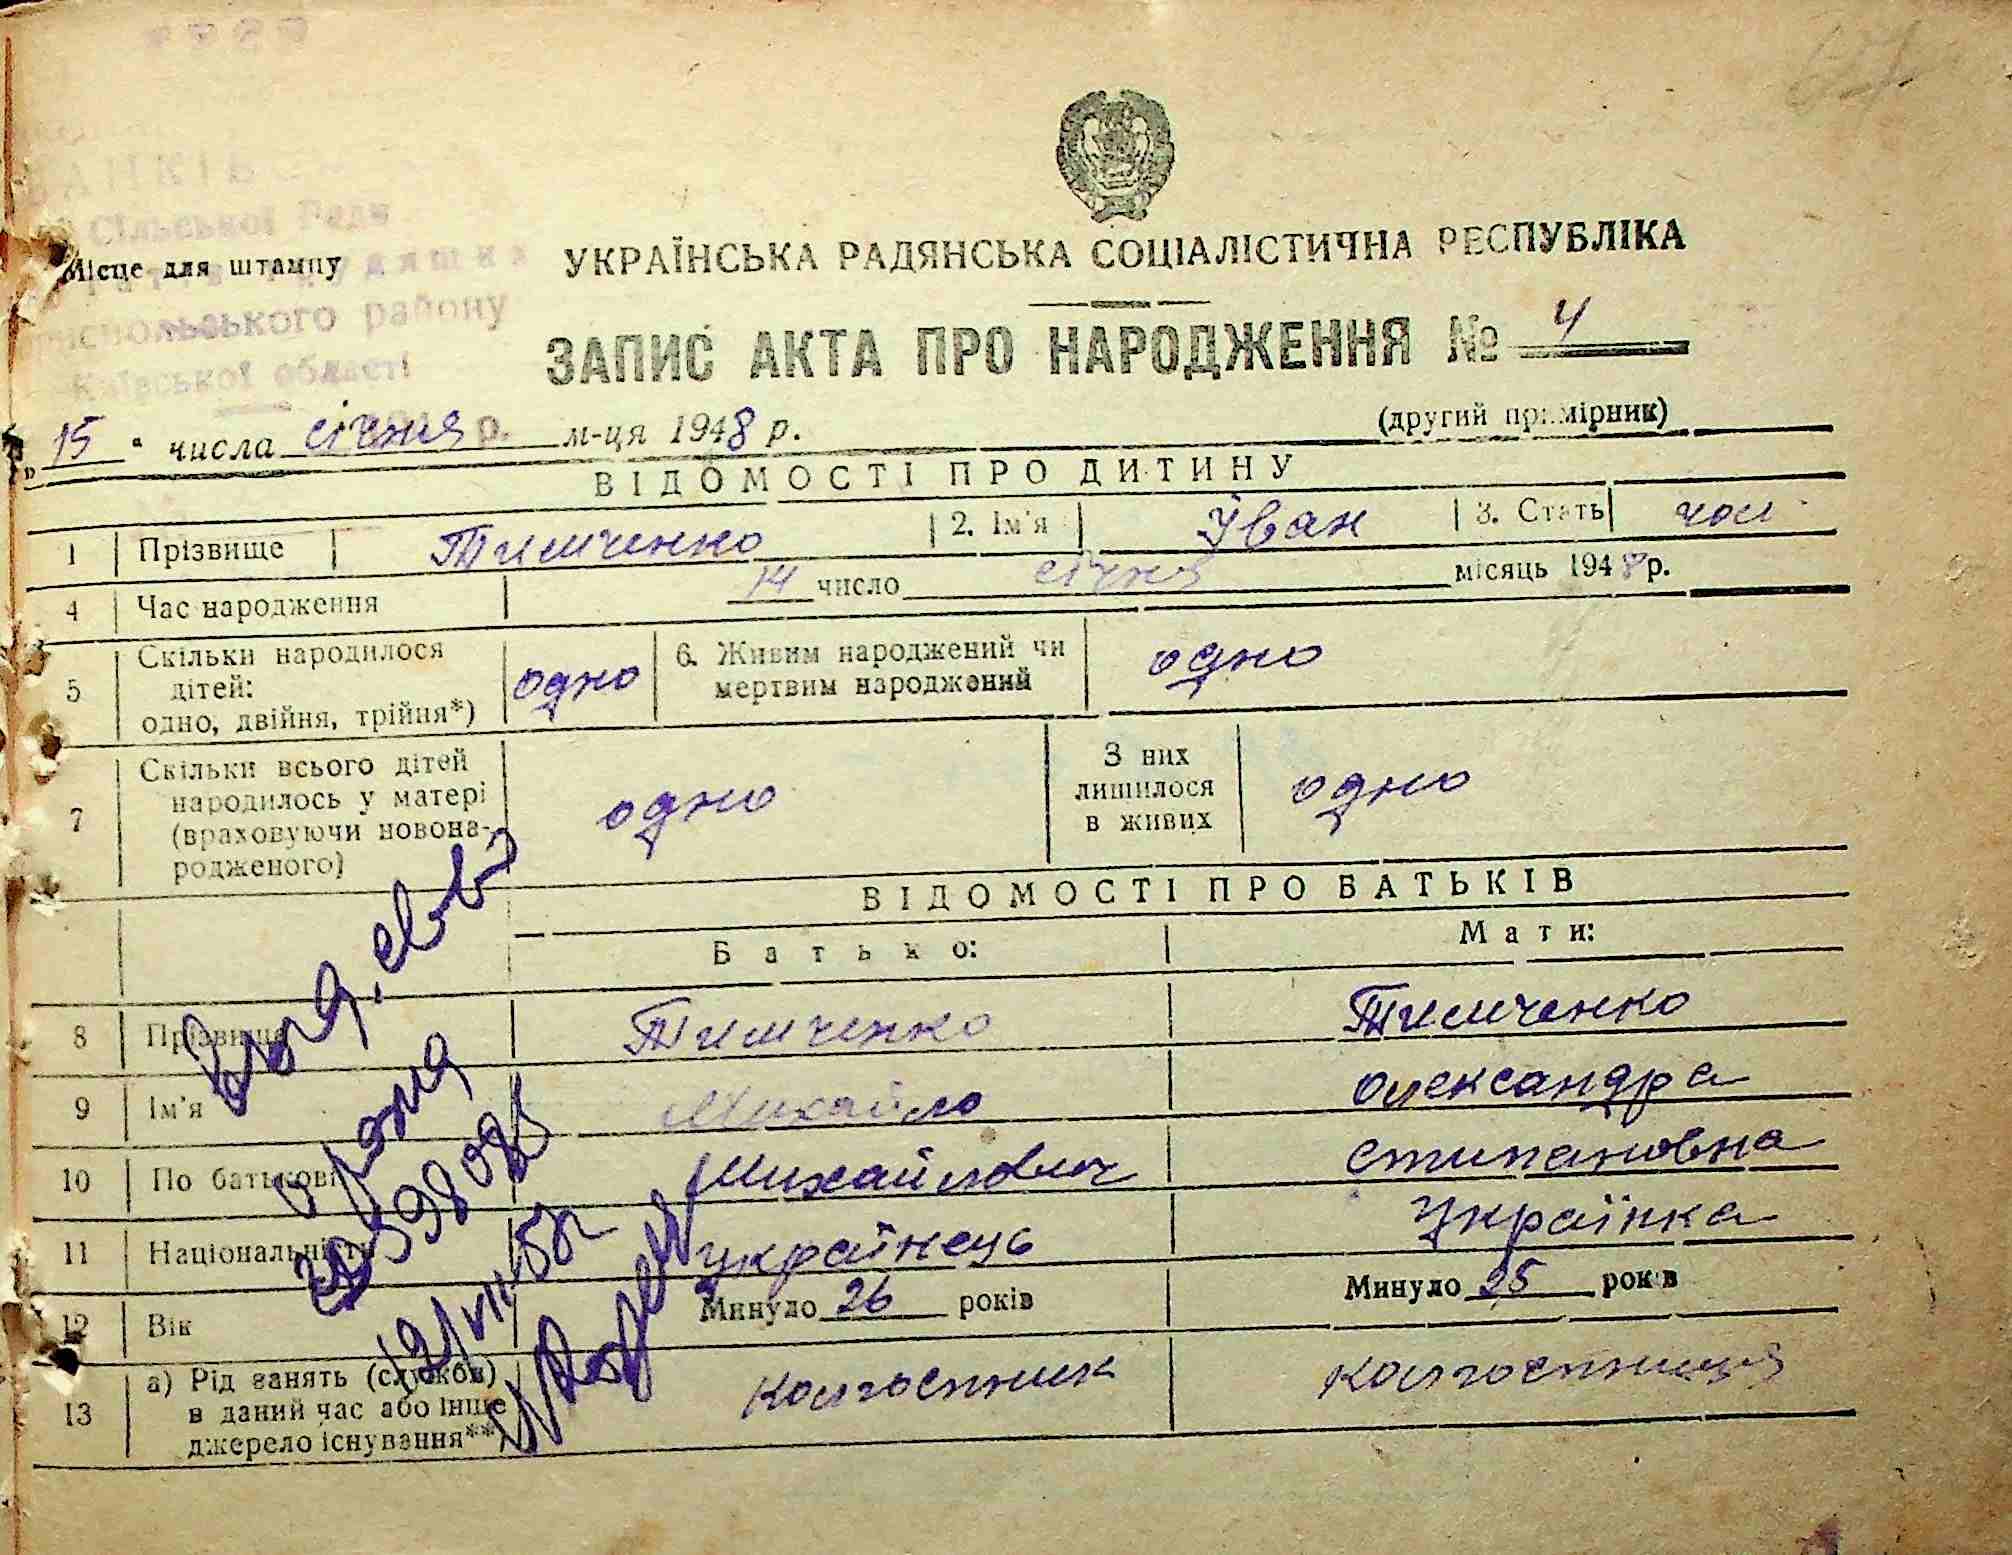 Сільської Ради
Місце для штампу
УКРАЇНСЬКА РАДЯНСЬКА СОЦІАЛІСТИЧНА РЕСПУБЛІКА
району
Київської області
ЗАПИС АКТА ПРО НАРОДЖЕННЯ № 4
(другий примірник)
„15“ числа січня р. м-ця 1948 р.
ВІДОМОСТІ ПРО ДИТИНУ
1 Прізвище Тимченко 2. Ім'я Іван 3. Стать чол
4 Час народження 14 число січня місяць 1948 р.
5 Скільки народилося дітей: одно, двійня, трійня*) одно 6. Живим народжений чи мертвим народжений одно
7 Скільки всього дітей народилось у матері (враховуючи новонародженого) одно З них лишилося в живих одно
ВІДОМОСТІ ПРО БАТЬКІВ
Батько: Мати:
8 Прізвище Тимченко Тимченко
9 Ім'я Михайло Олександра
10 По батькові Михайлович Стипановна
11 Національність Українець Українка
12 Вік Минуло 26 років Минуло 25 років
13 а) Рід занять (служби) в даний час або інше джерело існування**) Колгоспник Колгоспниця